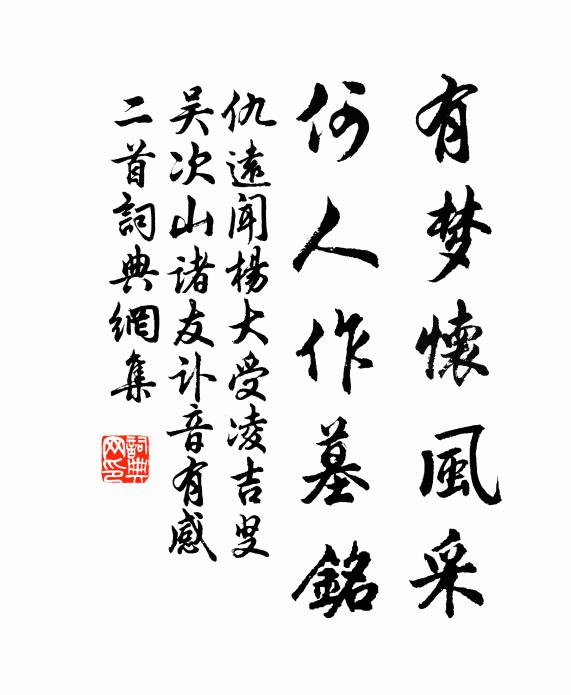 有梦懷風采
何人作墓銘
仇遠聞楊大受凌吉叟
吴次山諸友讣音有感
二首詞典網集
詞典网印